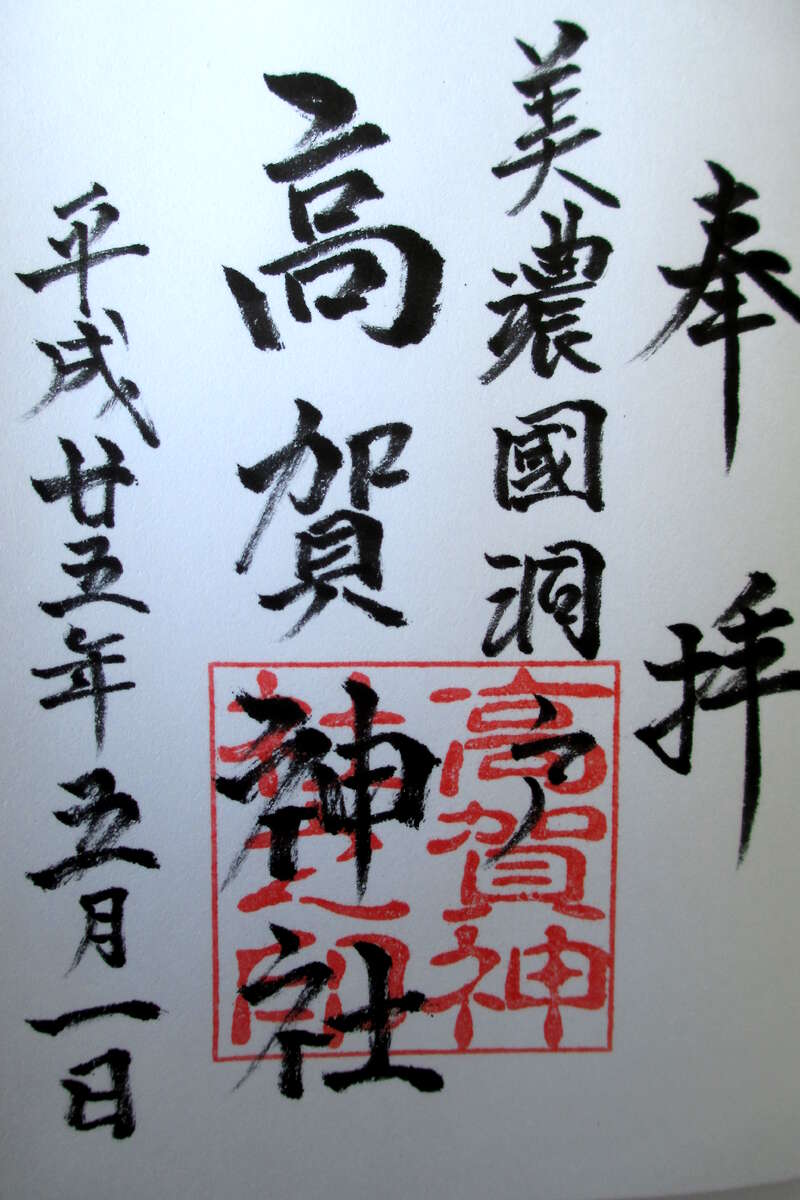 奉拝
美濃國洞戸
高賀神社
平成廿五年五月一日
高賀神
社之印